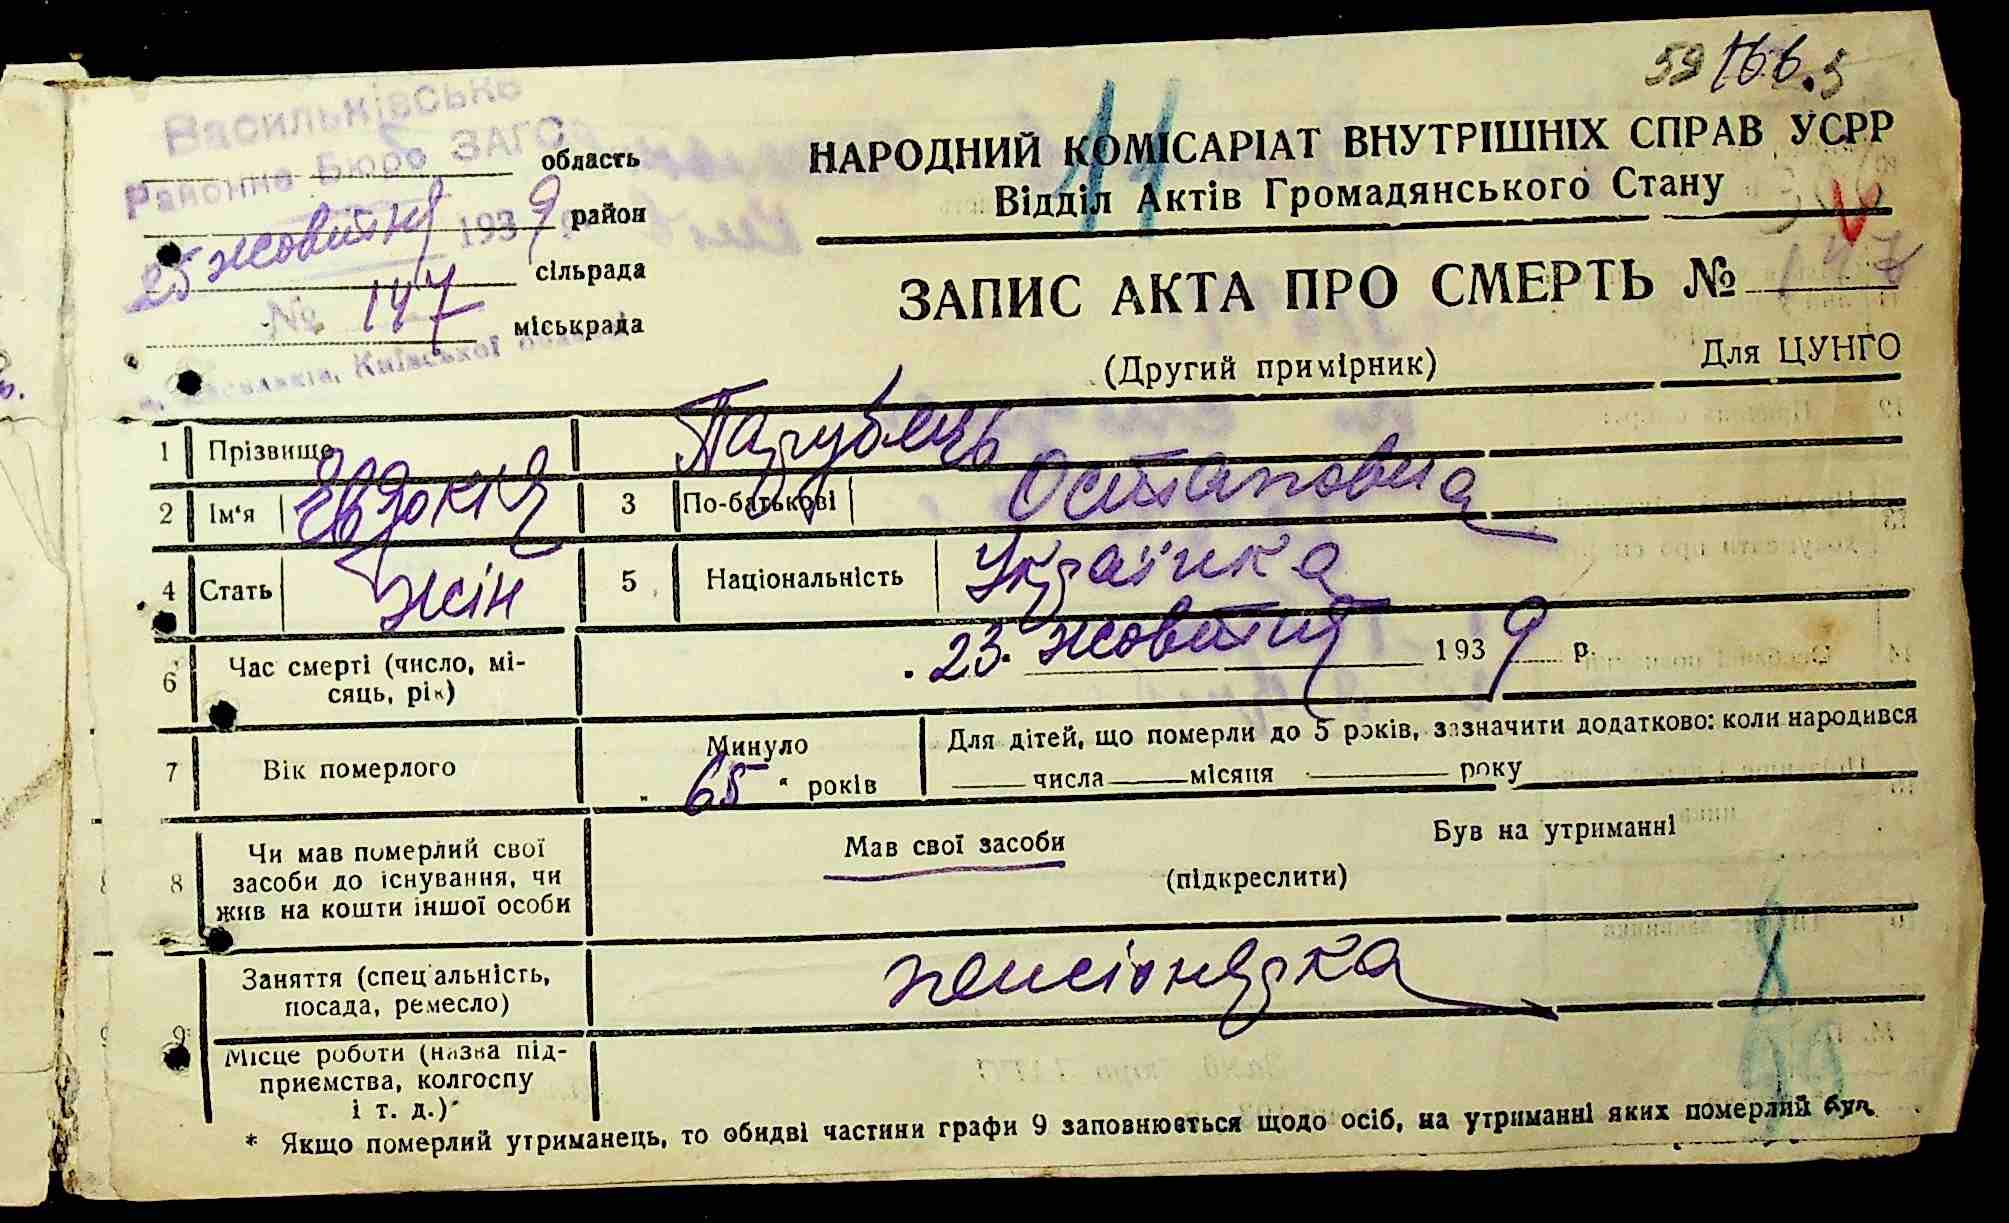 59 166.5
Васильківське
Районне Бюро ЗАГС
область
25 жовтня 1939 район
сільрада
№ 147
міськрада
м. Васильків, Київської області
11
НАРОДНИЙ КОМІСАРІАТ ВНУТРІШНІХ СПРАВ УСРР
Відділ Актів Громадянського Стану
ЗАПИС АКТА ПРО СМЕРТЬ № 147
(Другий примірник)
Для ЦУНГО
1 Прізвище Парубець
2 Ім'я Евдокія 3 По-батькові Остаповна
4 Стать жін 5 Національність Українка
6 Час смерті (число, мі-
сяць, рік)
23 жовтня 1939 р.
7 Вік померлого
Минуло
65 років
Для дітей, що померли до 5 років, зазначити додатково: коли народився
числа місяця року
8 Чи мав померлий свої
засоби до існування, чи
жив на кошти іншої особи
Мав свої засоби
Був на утриманні
(підкреслити)
9 Заняття (спеціальність,
посада, ремесло)
пенсіонярка
Місце роботи (назва під-
приємства, колгоспу
і т. д.)*
* Якщо померлий утриманець, то обидві частини графи 9 заповнюється щодо осіб, на утриманні яких померлий був